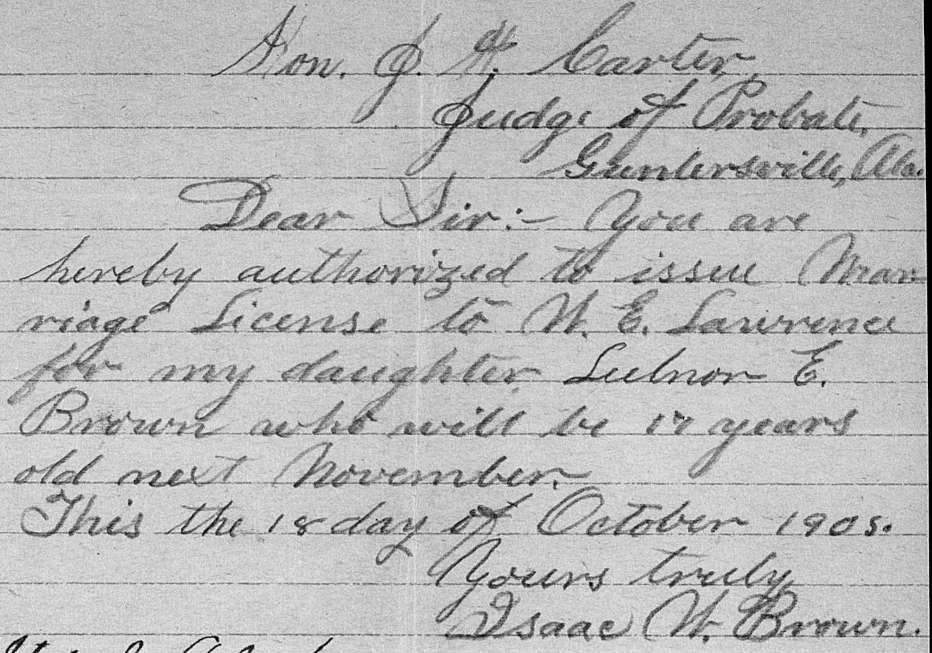 Hon. J. H. Carter,
Judge of Probate,
Guntersville, Ala.
Dear Sir:- You are
hereby authorized to issue Mar-
riage License to W. E. Lawrence
for my daughter Lulnor E.
Brown who will be 17 years
old next November.
This the 18 day of October 1905.
Yours truly
Isaac W. Brown.